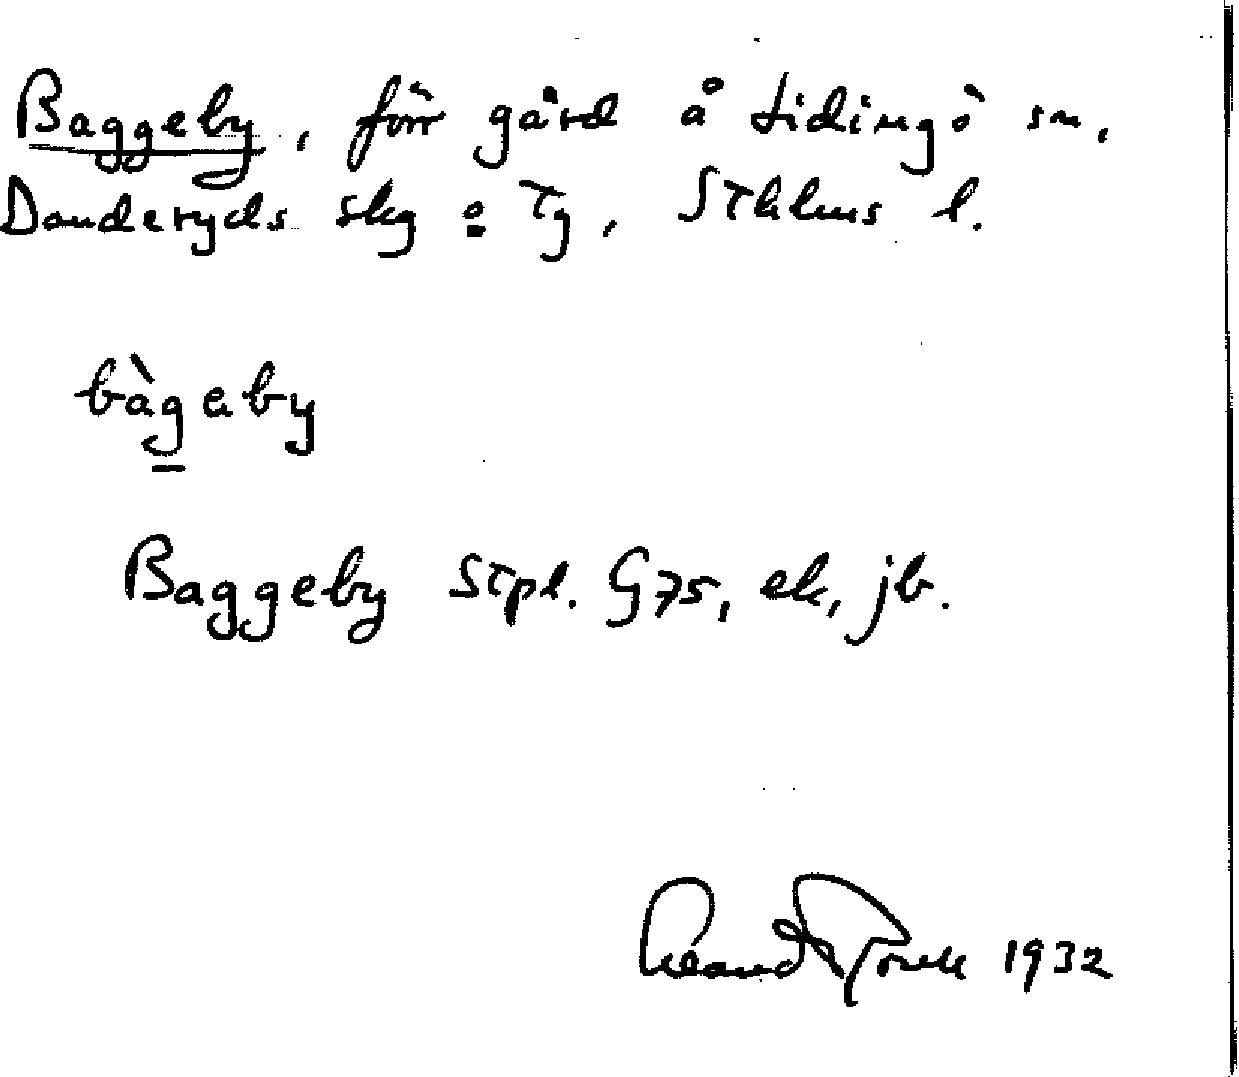 Baggeby, förr gård å Lidingö sn,
Danderyds skg o Tg, Sthlms l.
bàgeby
Baggeby Stpl. G75, ek, jb.
1932